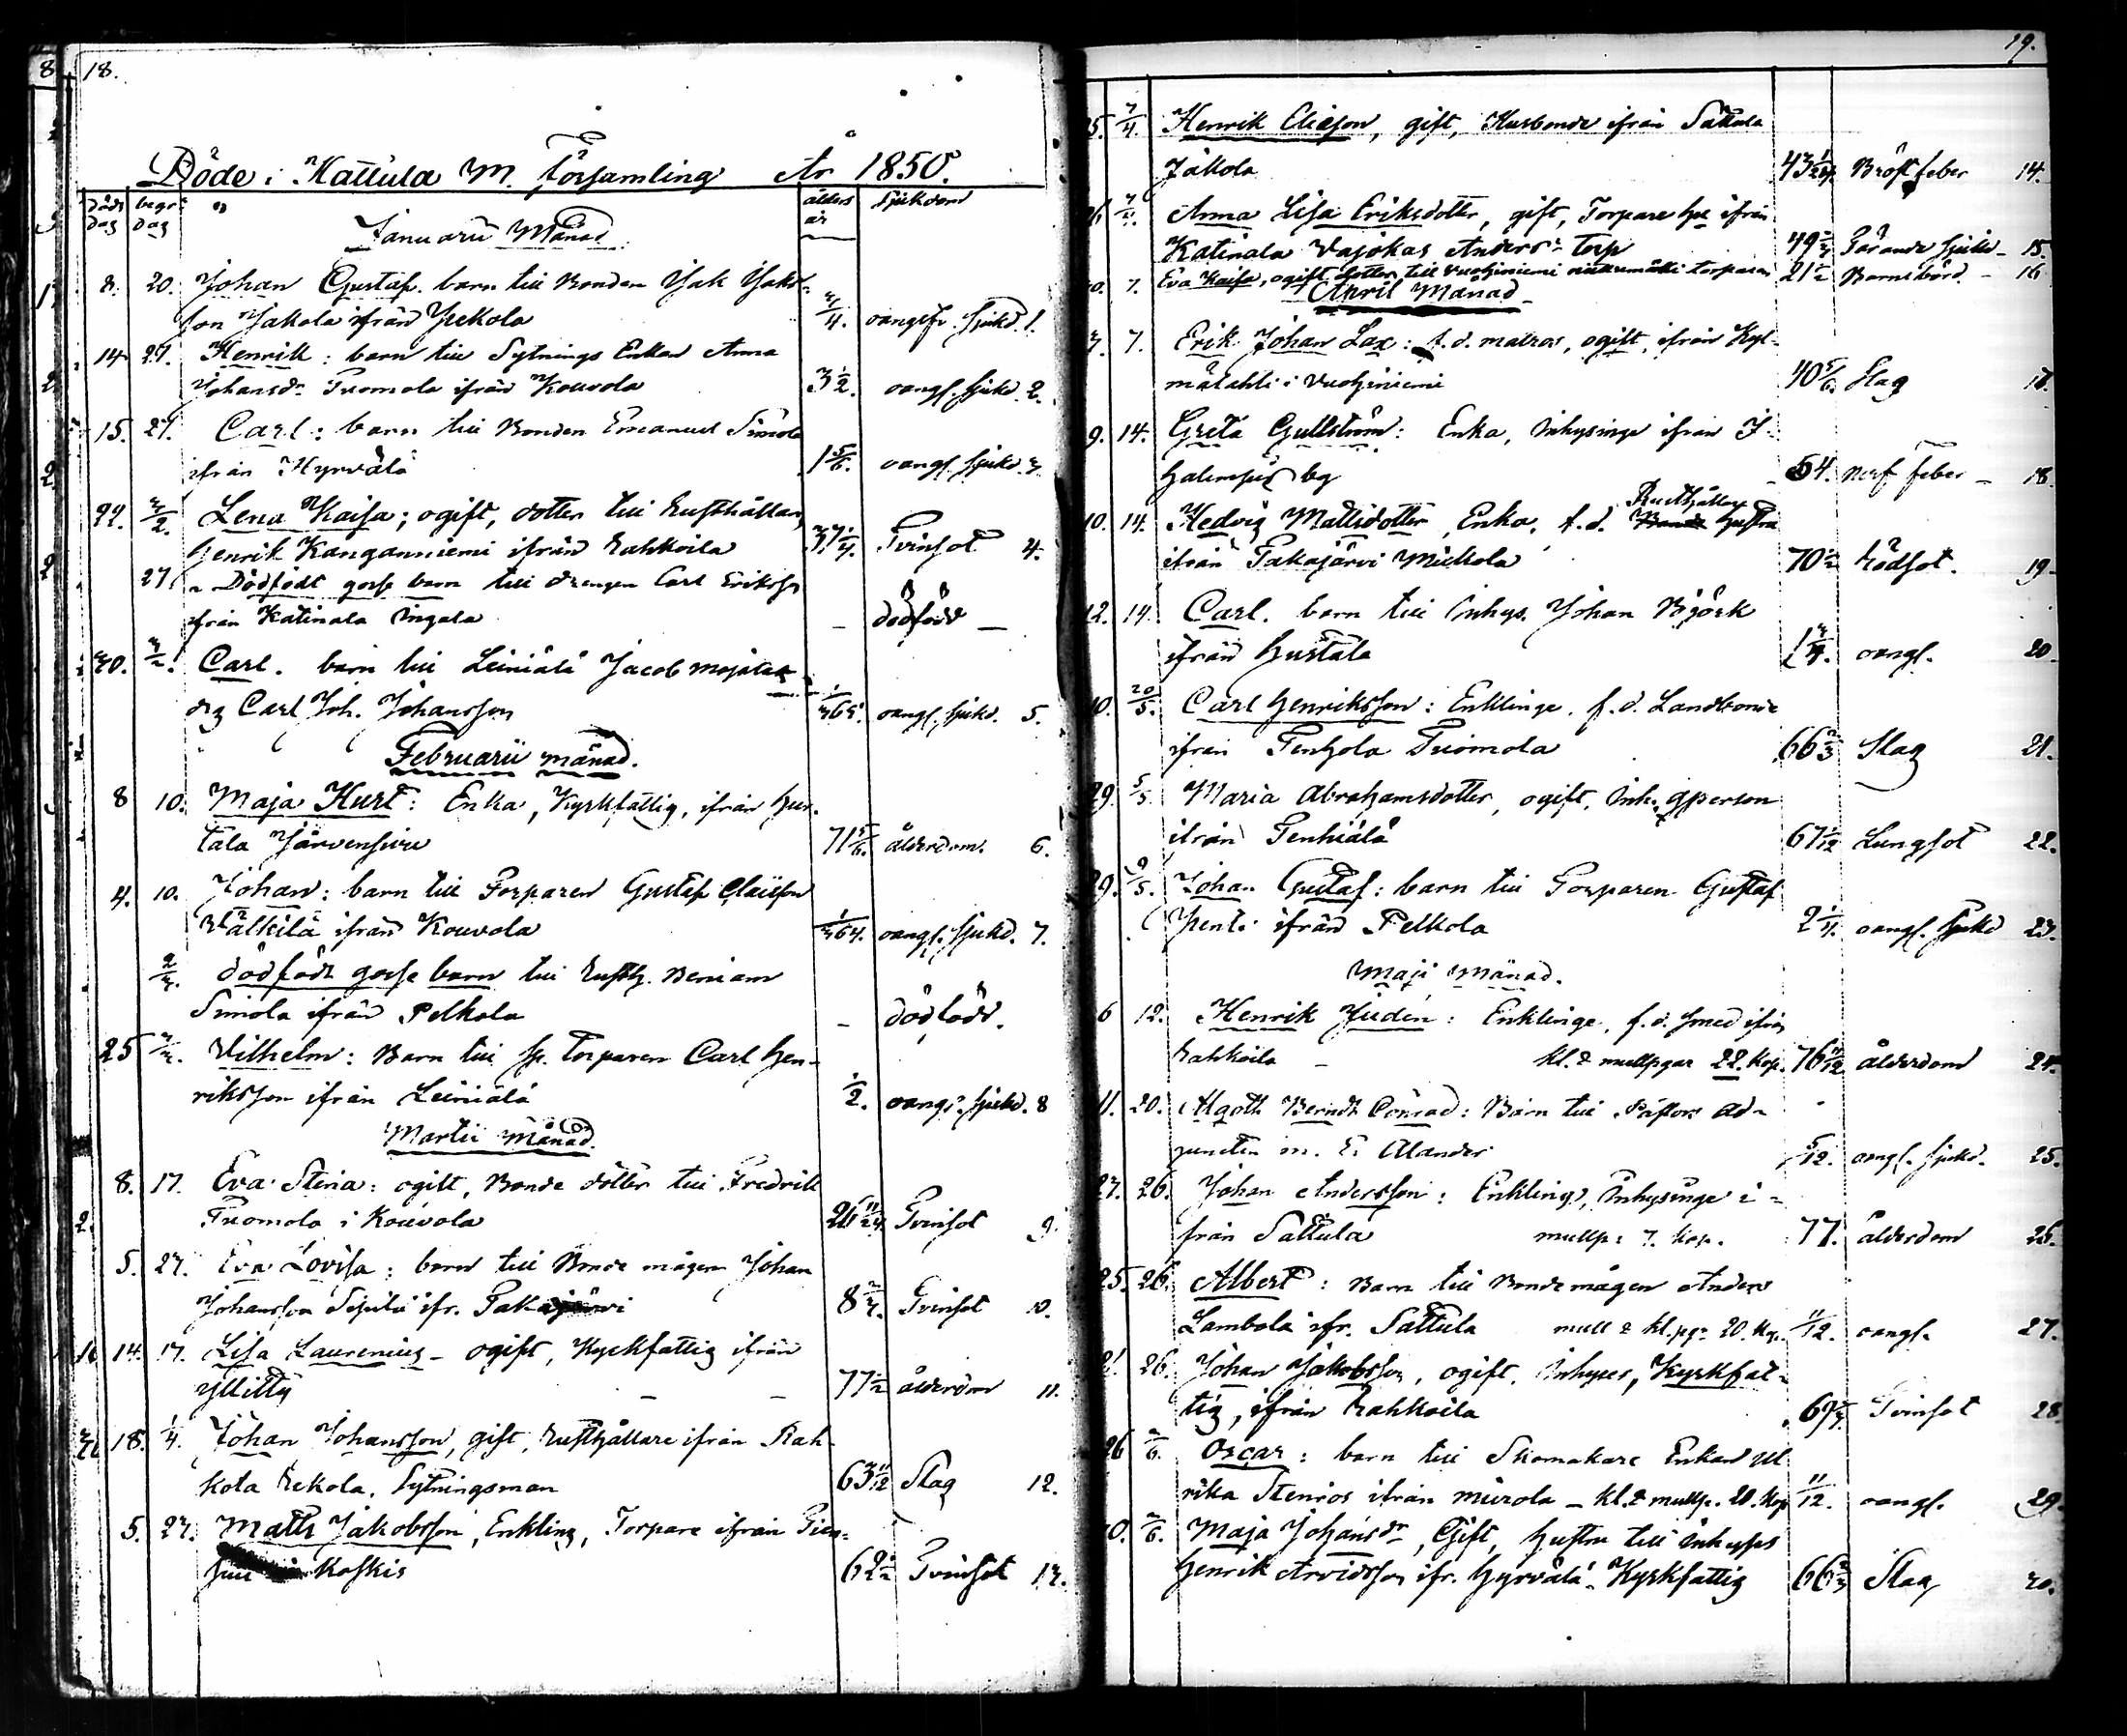 18.
Döde i Hattula M. Församling År 1850.
döds dag begr: dag ålders år Sjukdom
Januarii Månad
8. 20. Johan Gustaf. barn till Bonden Isak Isaks-
son Jakola ifrån Pekola 3/4. oangifv. sjukd. 1.
14. 27. Henrik: barn till Sytnings Enkan Anna
Johansdr Tuomola ifrån Kouvola 3 1/2. oangf. sjukd. 2.
15. 27. Carl: barn till Bonden Emanuel Simola
ifrån Hyrvälä 1 5/6. oangf. sjukd. 3.
22. 3/2 Lena Kaisa; ogift, dotter till Rusthållar
Henrik Kanganniemi ifrån Rahkoila 37 1/4. Tvinsot 4.
27. Dödfödt gosse barn till drengen Carl Eriksson
från Katinala Ingala – dödfödd –
30. 3/2. Carl. barn till Leiniälä Jacob
drg Carl Joh. Johansson 1/365. oangf. sjukd. 5.
Februarii månad.
8 10. Maja Hurt: Enka, Kyrkfattig, ifrån Hur-
tala Järvensivu 71 5/6. ålderdom. 6.
4. 10. Johan: barn till Torparen Gustaf
Wälkilä ifrån Kouvola 1/364. oangf. sjukd. 7.
2/3. dödfödt gosse barn till Rusth. Beniam
Simola ifrån Pelkola – dödfödd.
25 3/3. Vilhelm: Barn till sp. Torparen Carl Hen-
riksson ifrån Leiniälä 1/2. oangf. sjukd. 8
Martii Månad.
8. 17. Eva Stina: ogift, Bonde dotter till Fredrik
Tuomola i Kouvola 26 11/24 Tvinsot 9.
5. 27. Eva Lovisa: barn till Bonde mågen Johan
Johansson Seppälä ifr. Takajärvi 8 2/3. Tvinsot 10.
14. 17. Lisa Laurenius – ogift, Kyrkfattig ifrån
Yllitty – – 77 1/2 ålderdom 11.
18. 1/4. Johan Johansson, gift, Rusthållare ifrån Rah-
kola Rekola. Sytningsman 63 11/12 Slag 12.
5. 23. Matts Jakobsson, Enkling, Torpare ifrån
Koskis 62 1/2 Tvinsot 13.
19.
25. 7/4. Henrik Eliasson, gift, Husbonde ifrån Sattula
Jakola 43 1/24. Bröst feber 14.
26 7/4. Anna Lisa Eriksdotter, gift, Torpare hu ifrån
Katinala Vajokas Anders: torp 49 2/3 Tärande sjukd – 15.
30. 7. Eva Kaisa, ogift dotter till Vuohiniemi torparen 21 1/2 Barnsbörd – 16
April Månad
3. 7. Erik Johan Lax: f.d. matros, ogift, ifrån Kyl-
mälahti i Vuohiniemi 40 5/6. Slag 17.
9. 14. Greta Gullström: Enka, Inhysinge ifrån I-
halempis by – 54. nerf feber – 18.
10. 14. Hedvig Mattsdotter, Enka, f.d. Rusthållar hustru
ifrån Takajärvi Mickola 70 1/2 Rödsot. 19.
12. 14. Carl. barn till Inhys. Johan Björk
ifrån Hurttala 1 3/4. oangf. 20.
10. 20/5. Carl Henriksson: Enklinge. f.d. Landbonde
ifrån Tenhola Tuomola 66 2/3 Slag 21.
29. 5/5. Maria Abrahamsdotter, ogift, Inh. qperson
ifrån Tenhiälä 67 1/12 Lungsot 22.
29. 9/5. Johan Gustaf: barn till Torparen Gustaf
Penti ifrån Pelkola 2 1/4. oangf. sjukd 23.
Maji Månad.
6 12. Henrik Hiden: Enklinge, f.d. smed ifrån
Rahkoila – kl. & mullpgar 22. kop. 76 11/12 ålderdom 24.
11. 20. Algoth Berndt Conrad: Barn till Pastors ad-
juncten m. E. Alander 5/12. oangf. sjukd. 25.
23. 26. Johan Andersson: Enkling, Inhysinge i-
från Sattula mullp: 7. kop. 77. ålderdom 26.
25. 26. Albert: Barn till Bondemågen Anders
Lambola ifr. Sattula mull & kl.pgr 20. kop. 11/12. oangf. 27.
21. 26. Johan Jakobsson, ogift, Inhyses, Kyrkfat-
tig, ifrån Rahkoila 69 2/3. Tvinsot 28
26 2/6. Oscar: barn till Skomakare Enkan Ul-
rika Stenros ifrån Mierola – kl. & mullp. 20. kop 11/12. oangf. 29.
30. 2/6. Maja Johansdr, Gift, hustru till Inhyses
Henrik Arvidsson ifr. Hyrvälä – Kyrkfattig 66 2/3 Slag 30.